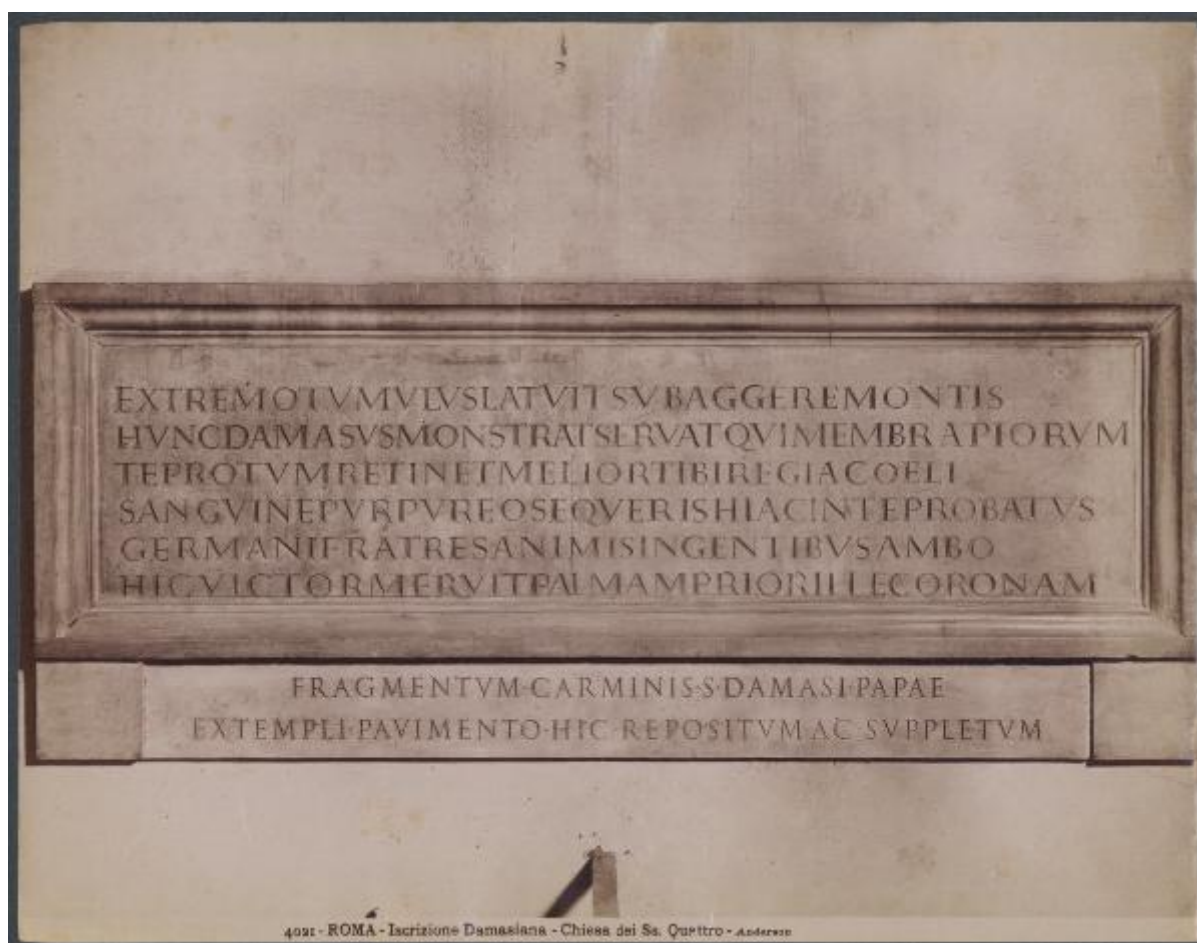 EXTREMOTVMVLVSLATVITSVBAGGEREMONTIS
HVNCDAMASVSMONSTRATSERVATQVIMEMBRAPIORVM
TEPROTVMRETINETMELIORTIBIREGIACOELI
SANGVINEPVRPVREOSEQVERISHIACINTEPROBATVS
GERMANIFRATRESANIMISINGENTIBVSAMBO
HICVICTORMERVITPALMAMPRIORILLECORONAM
FRAGMENTVM·CARMINIS·S·DAMASI·PAPAE
EXTEMPLI·PAVIMENTO·HIC·REPOSITVM·AC·SVPPLETVM
4021 - ROMA - Iscrizione Damasiana - Chiesa dei Ss. Quattro - Anderson